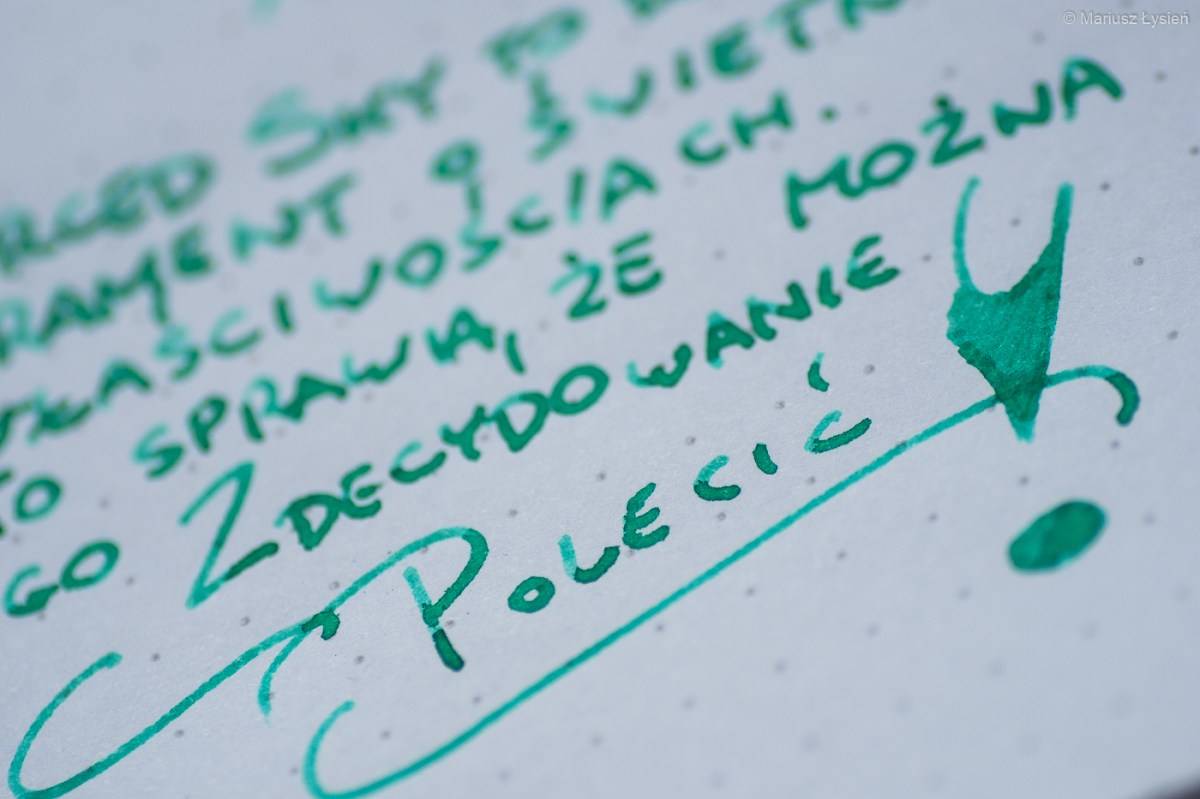 © Mariusz Łysień
SMY TO
RAMENT O ŚWIETN
WŁAŚCIWOŚCIACH.
TO SPRAWIA, ŻE MOŻNA
GO ZDECYDOWANIE
POLECIĆ!